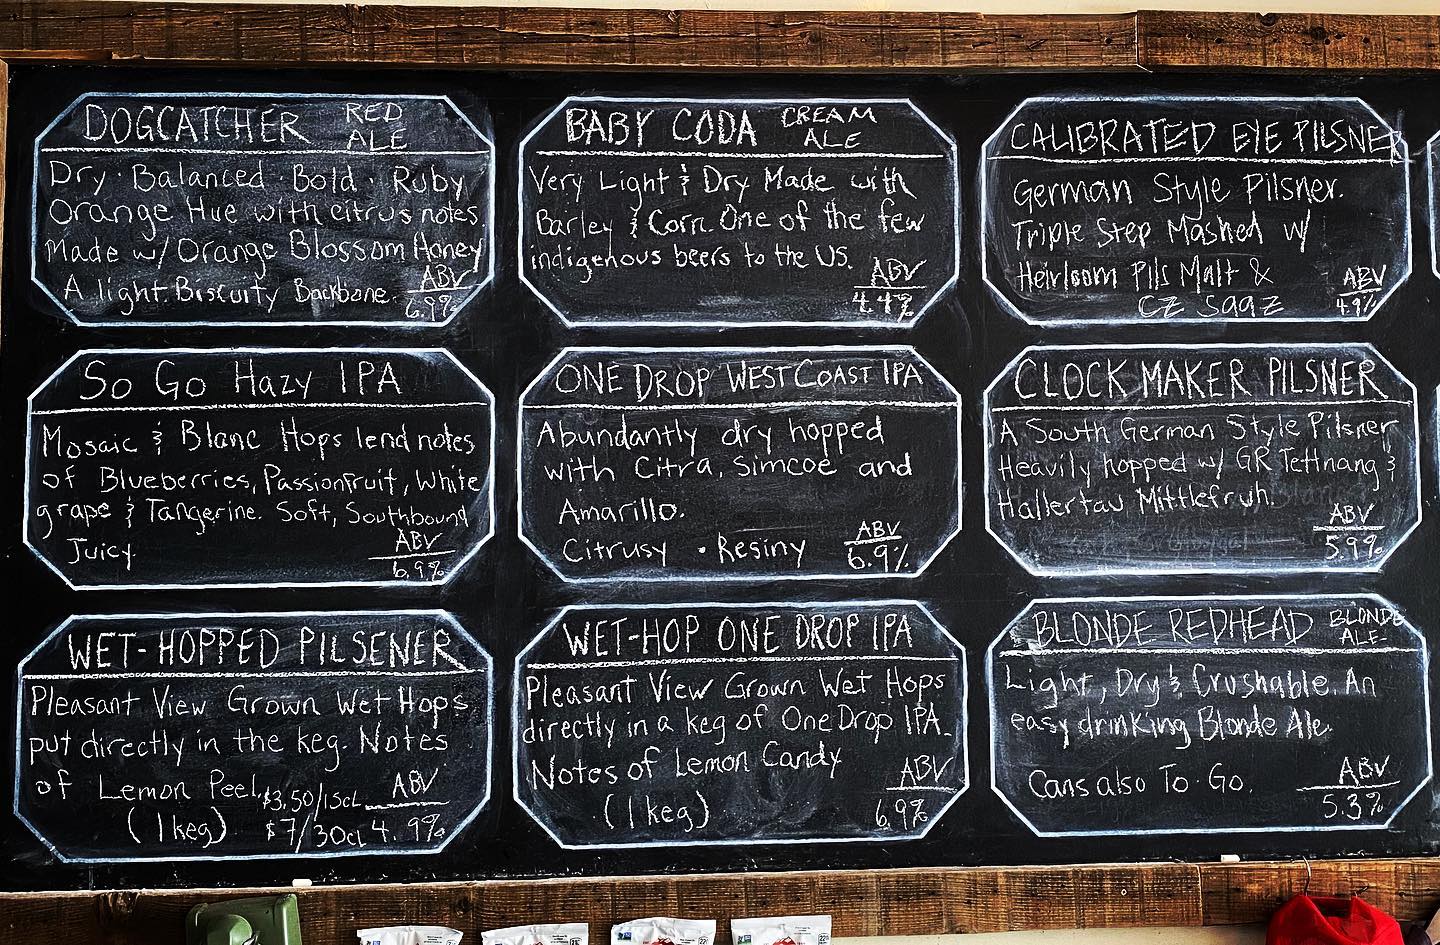 DOGCATCHER RED ALE
Dry · Balanced · Bold · Ruby
Orange Hue with citrus notes
Made w/ Orange Blossom Honey
A light Biscuity Backbone.
ABV
6.9%
BABY CODA CREAM ALE
Very Light & Dry Made with
Barley & Corn. One of the few
indigenous beers to the US.
ABV
4.4%
CALIBRATED EYE PILSNER
German Style Pilsner.
Triple Step Mashed w/
Heirloom Pils Malt &
CZ Saaz
ABV
4.9%
So Go Hazy IPA
Mosaic & Blanc Hops lend notes
of Blueberries, Passionfruit, White
grape & Tangerine. Soft, Southbound
Juicy
ABV
6.9%
ONE DROP WEST COAST IPA
Abundantly dry hopped
with Citra, Simcoe and
Amarillo.
Citrusy · Resiny
ABV
6.9%
CLOCK MAKER PILSNER
A South German Style Pilsner
Heavily hopped w/ GR Tettnang &
Hallertau Mittlefruh.
ABV
5.9%
WET-HOPPED PILSENER
Pleasant View Grown Wet Hops
put directly in the keg. Notes
of Lemon Peel.
(1 keg)
$3.50/15cl
$7/30cl
ABV
4.9%
WET-HOP ONE DROP IPA
Pleasant View Grown Wet Hops
directly in a keg of One Drop IPA.
Notes of Lemon Candy
(1 keg)
ABV
6.9%
BLONDE REDHEAD BLONDE ALE-
Light, Dry & Crushable. An
easy drinking Blonde Ale.
Cans also To-Go.
ABV
5.3%